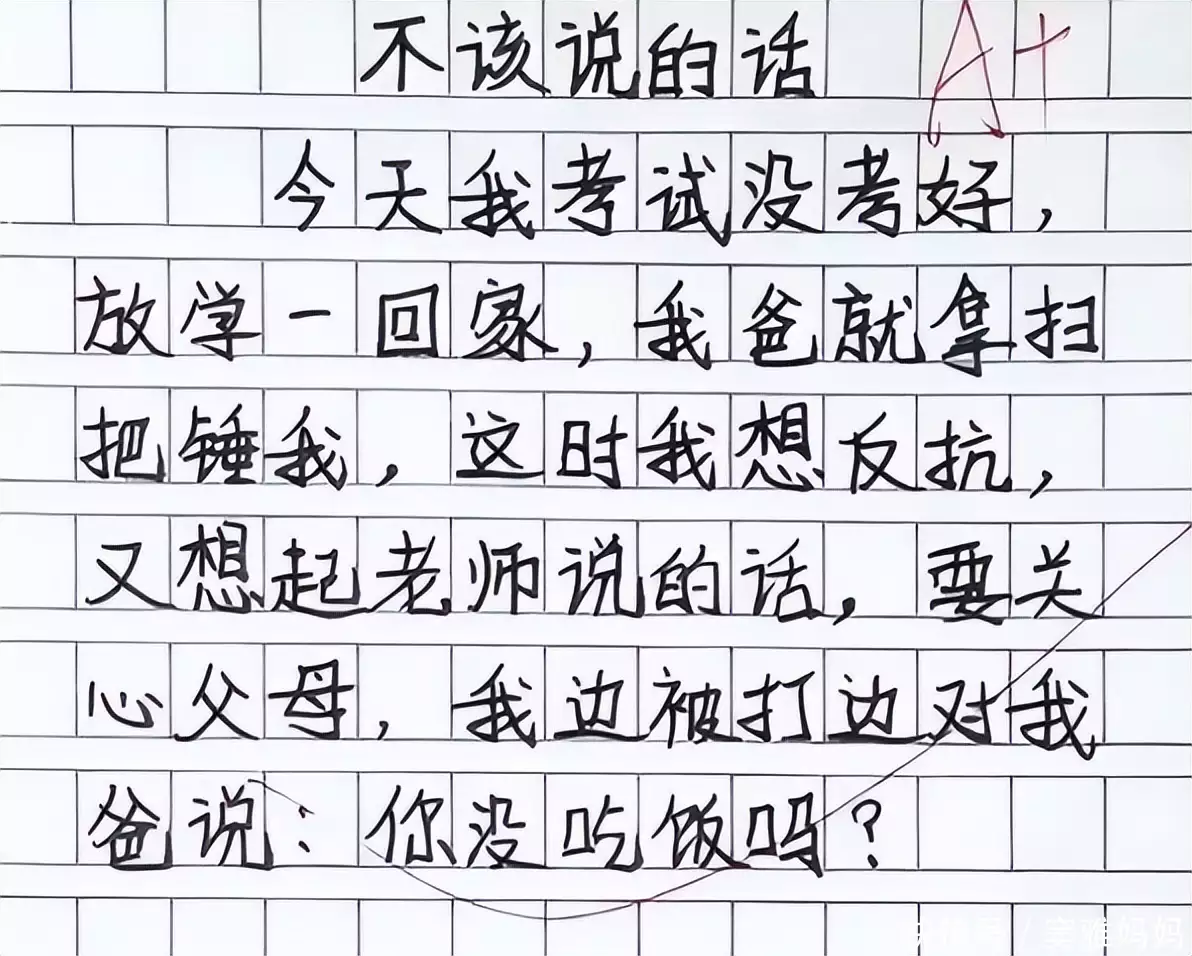 不该说的话 A+
今天我考试没考好，
放学一回家，我爸就拿扫
把锤我，这时我想反抗，
又想起老师说的话，要关
心父母，我边被打边对我
爸说：你没吃饭吗？
妈妈